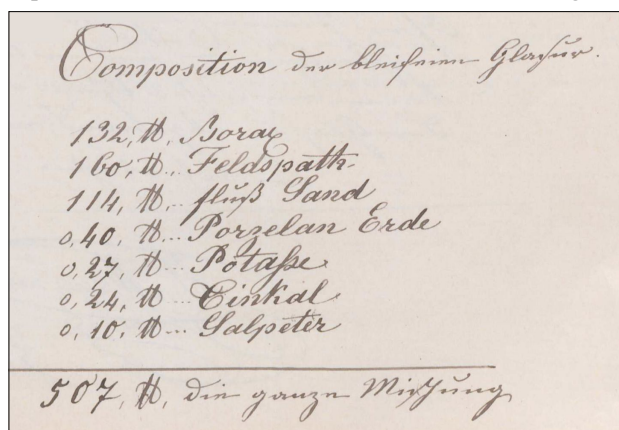 Composition der bleifreien Glasur.
132, ℔, Borax
160, ℔,, Feldspath
114, ℔,. fluß Sand
0,40, ℔... Porzelan Erde
0,27, ℔... Potaße
0,24, ℔... Tinkal
0,10, ℔... Salpeter
507, ℔, die ganze Mischung